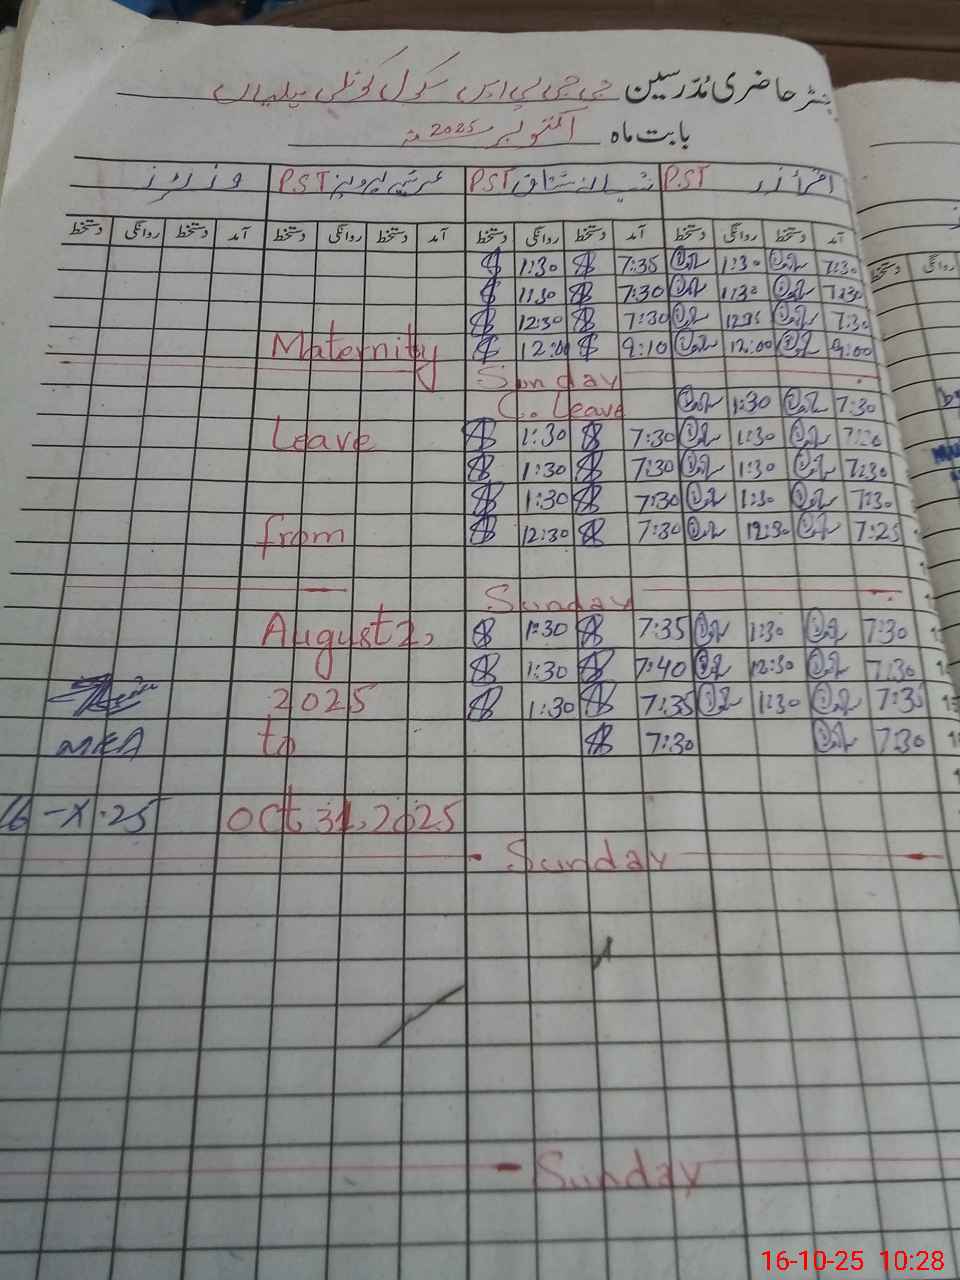 رجسٹر حاضری مدرسین جی جی پی ایس سکول کوٹلی میلیاں
بابت ماہ اکتوبر 2025ء
PST PST عرشیہ پرویز PST وزیٹرز
آمد دستخط روانگی دستخط آمد دستخط روانگی دستخط آمد دستخط روانگی دستخط آمد دستخط روانگی دستخط
7:30 1:30 7:35 1:30
7:30 1:30 7:30 1:30
7:30 7:30 12:30
9:00 12:00 9:10 12:00 Maternity
Sunday
7:30 1:30 C. Leave
7:30 1:30 7:30 1:30 Leave
7:30 1:30 7:30 1:30
7:30 1:30 7:30 1:30
7:25 12:30 7:30 12:30 from
Sunday
7:30 1:30 7:35 1:30 August 2,
7:30 12:30 7:40 1:30
7:35 1:30 7:35 1:30 2025
7:30 7:30 to MEA
Oct 31, 2025 16-X-25
Sunday
Sunday
16-10-25 10:28